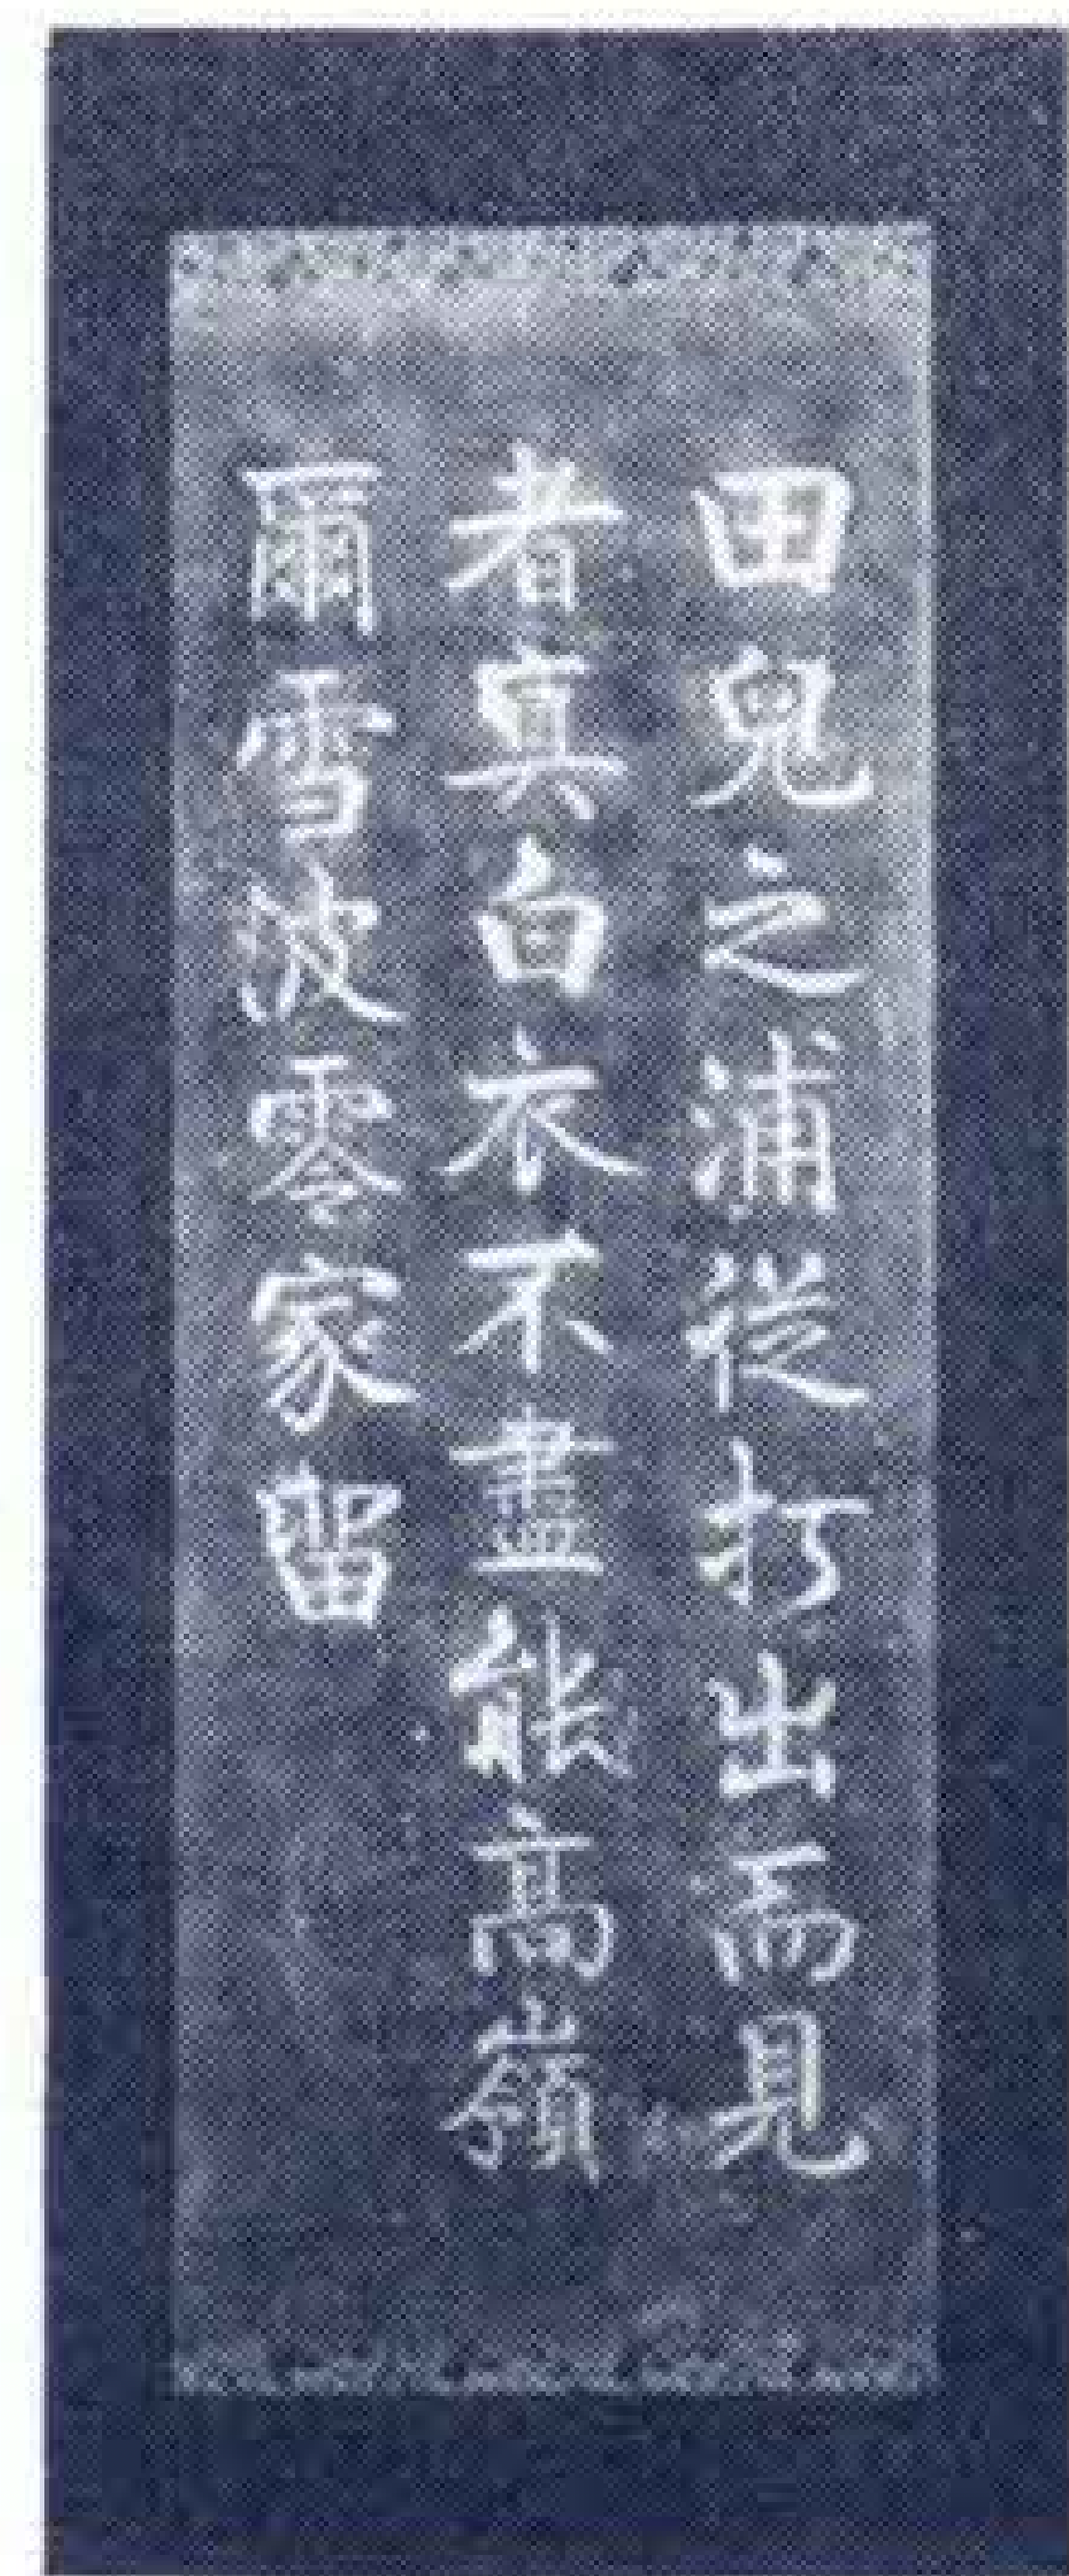 田兒之浦従打出而見
者真白衣不盡能高嶺
爾雪波零家留